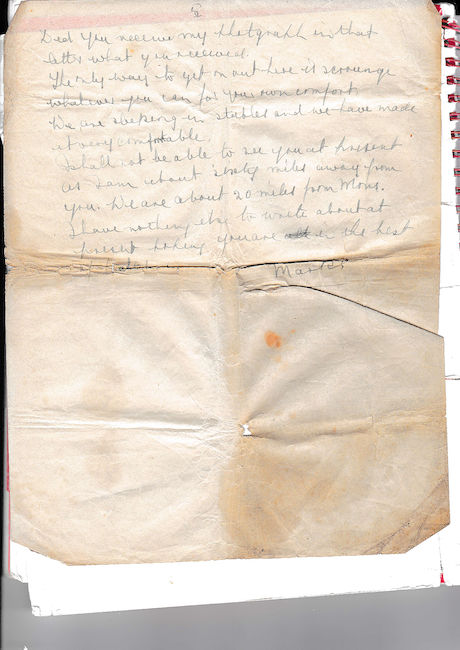 Did you receive my photgraph in that
letter what you received.
The only way to get on out here is scrounge
whatever you can for your own comfort
We are sleeping in stables and we have made
it very comfortable.
I shall not be able to see you at present
as I am about miles away from
you. We are about 20 miles from Mons.
I have nothing else to write about at
present hoping you are in the best